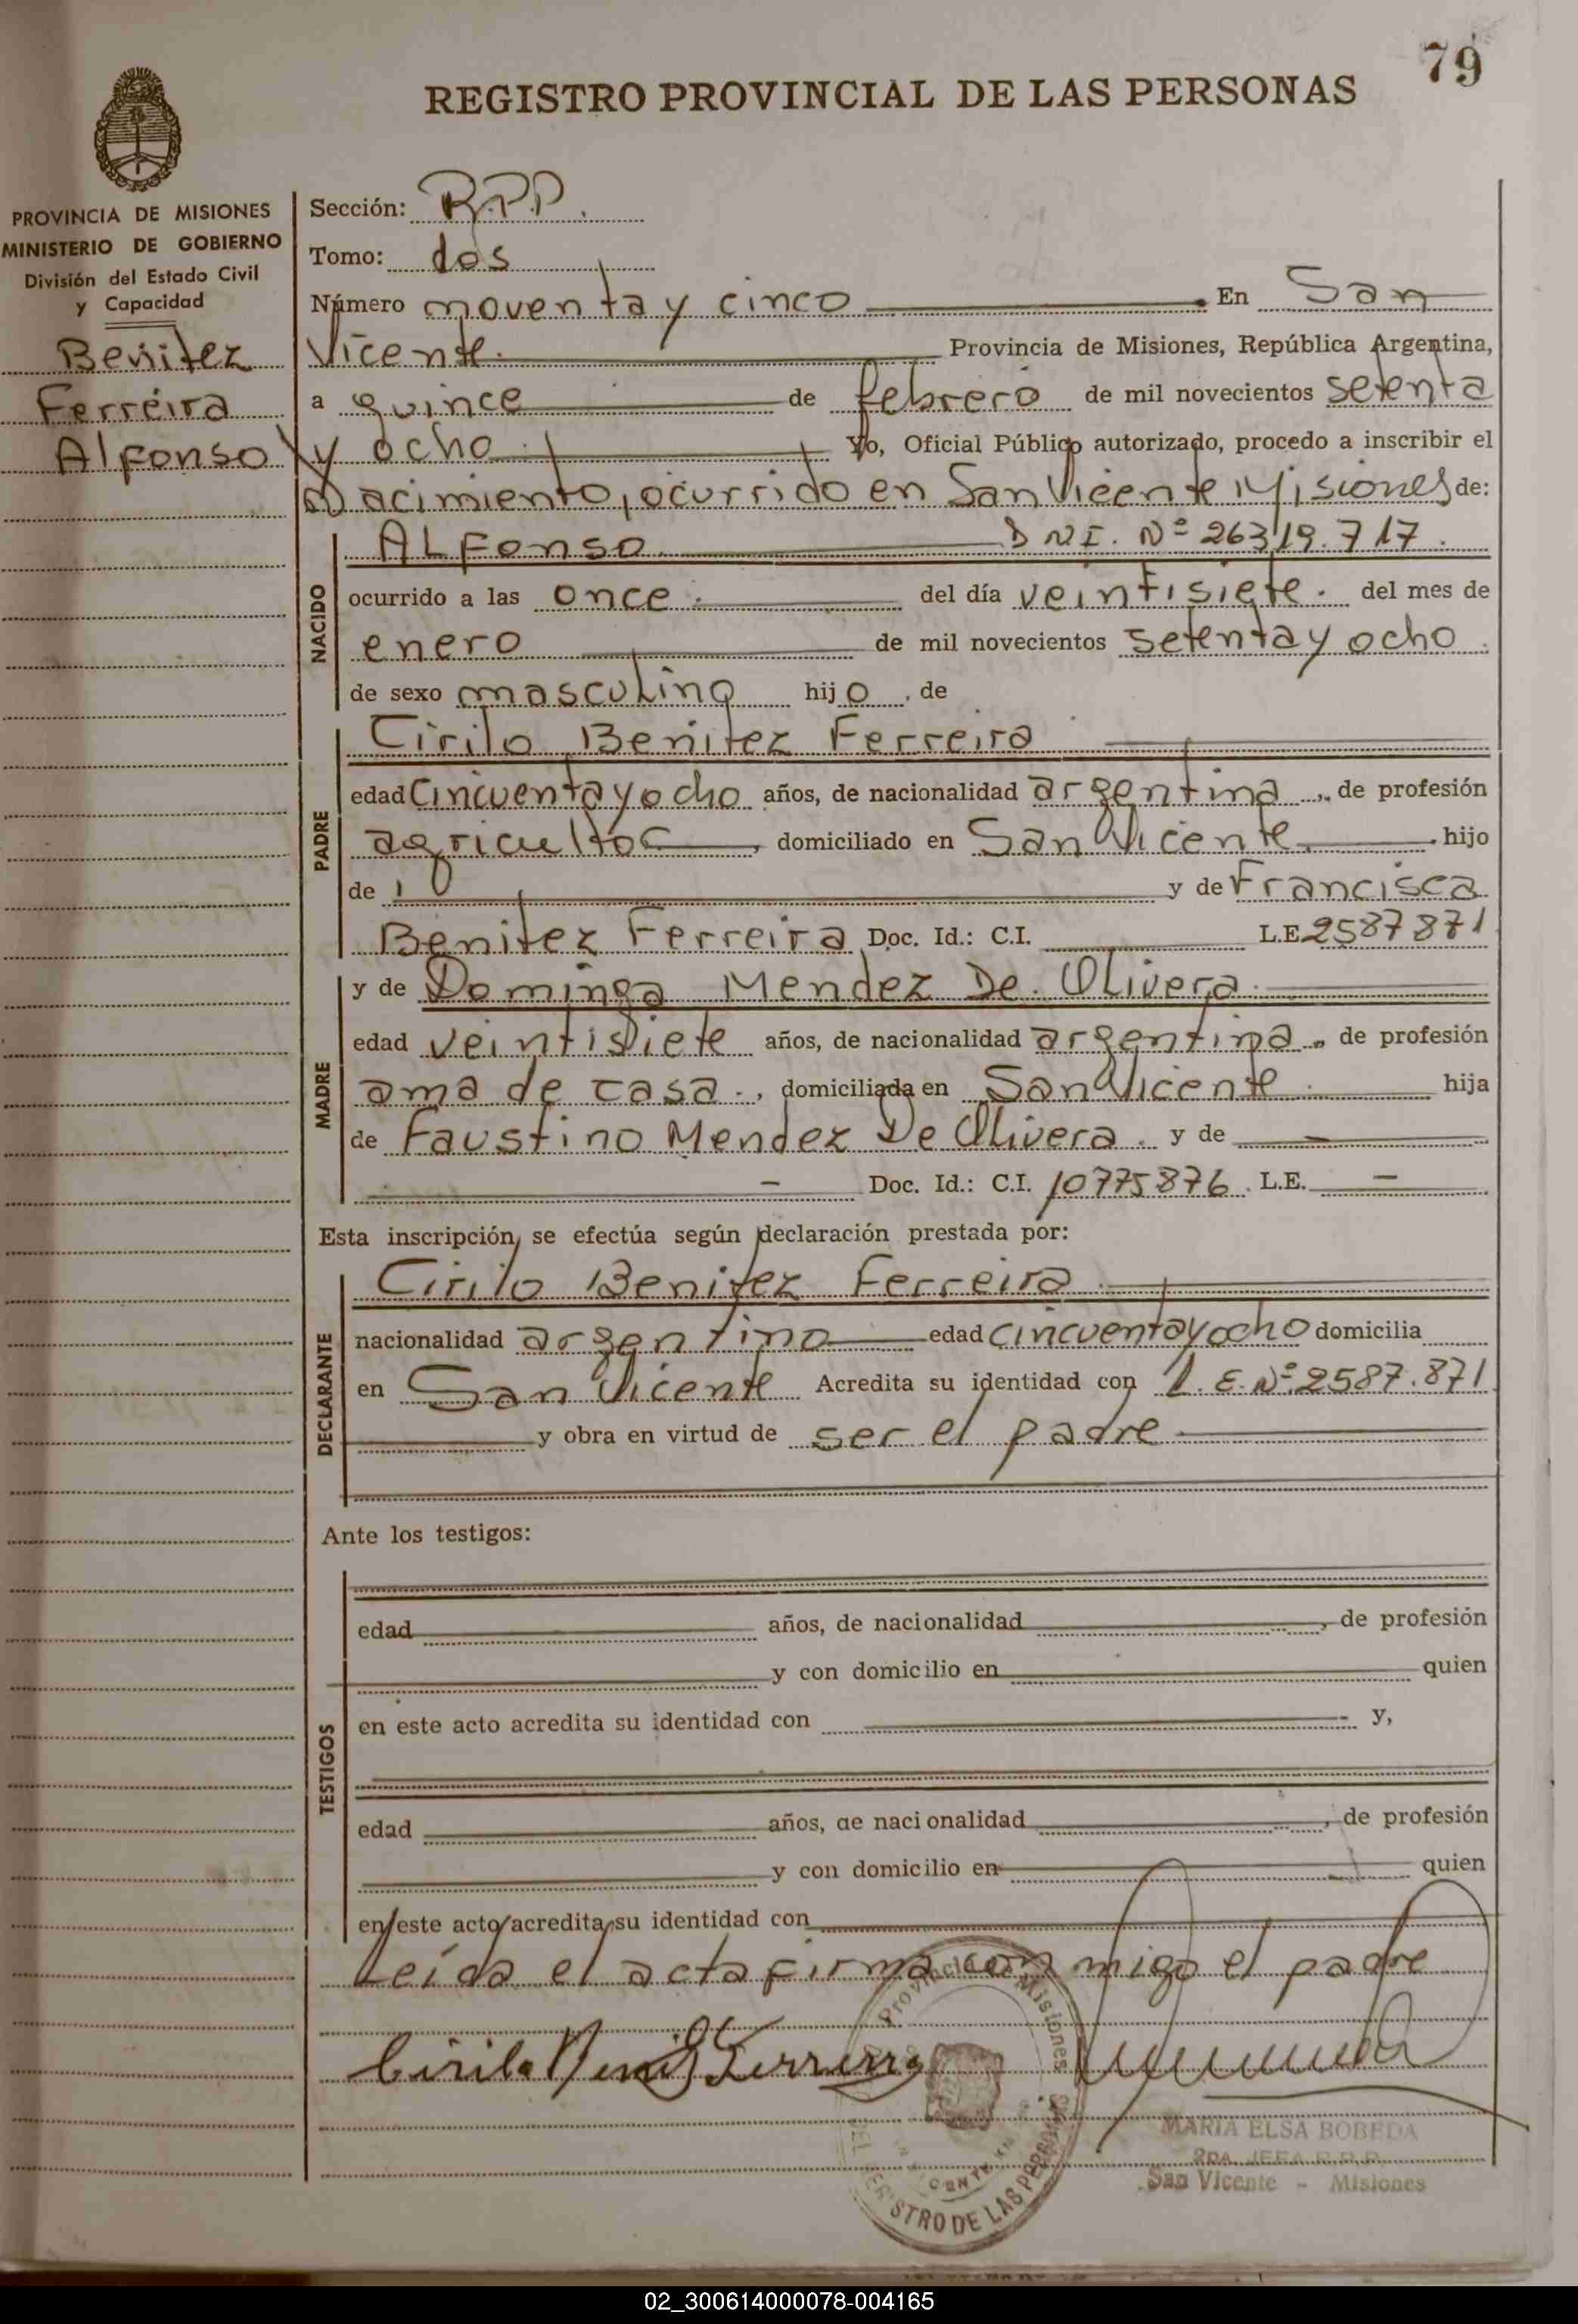 79
REGISTRO PROVINCIAL DE LAS PERSONAS
PROVINCIA DE MISIONES
MINISTERIO DE GOBIERNO
División del Estado Civil
y Capacidad
Benitez
Ferreira
Alfonso
Sección: R.P.P.
Tomo: dos
Número noventa y cinco En San
Vicente. Provincia de Misiones, República Argentina,
a quince de febrero de mil novecientos setenta
y ocho. Yo, Oficial Público autorizado, procedo a inscribir el
Nacimiento, ocurrido en San Vicente Misiones de:
NACIDO
ALFonso DNI. Nº 26319.717.
ocurrido a las once. del día veintisiete. del mes de
enero de mil novecientos setenta y ocho.
de sexo masculino hijo, de
PADRE
Cirilo Benitez Ferreira
edad cincuenta y ocho años, de nacionalidad argentina, de profesión
agricultor, domiciliado en San Vicente. hijo
de y de Francisca
Benitez Ferreira Doc. Id.: C.I. L.E. 2587871
MADRE
y de Dominga Mendez De. Olivera.
edad veintisiete años, de nacionalidad argentina, de profesión
ama de casa., domiciliada en San Vicente. hija
de Faustino Mendez De Olivera. y de —
— Doc. Id.: C.I. 10775876. L.E. —
Esta inscripción, se efectúa según declaración prestada por:
DECLARANTE
Cirilo Benitez Ferreira.
nacionalidad argentino edad cincuenta y ocho domicilia
en San Vicente Acredita su identidad con L.E. Nº 2587.871
y obra en virtud de ser el padre
Ante los testigos:
TESTIGOS
edad años, de nacionalidad, de profesión
y con domicilio en quien
en este acto acredita su identidad con y,
edad años, de nacionalidad, de profesión
y con domicilio en quien
en este acto acredita su identidad con
Leída el acta firma con migo el padre
Cirilo Benit Ferrerra
Provincia de Misiones
REGISTRO DE LAS PERSONAS
MARIA ELSA BOBEDA
2DA. JEFA R.P.P.
San Vicente - Misiones
02_300614000078-004165